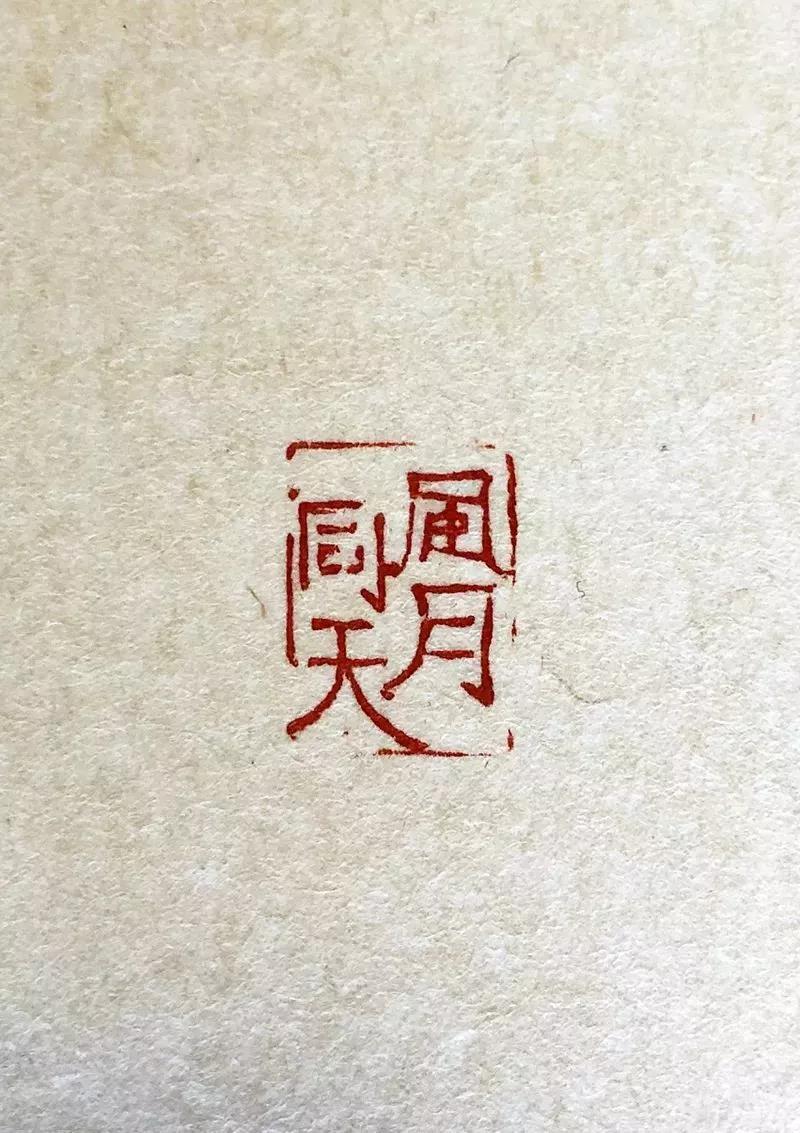 風月
同天